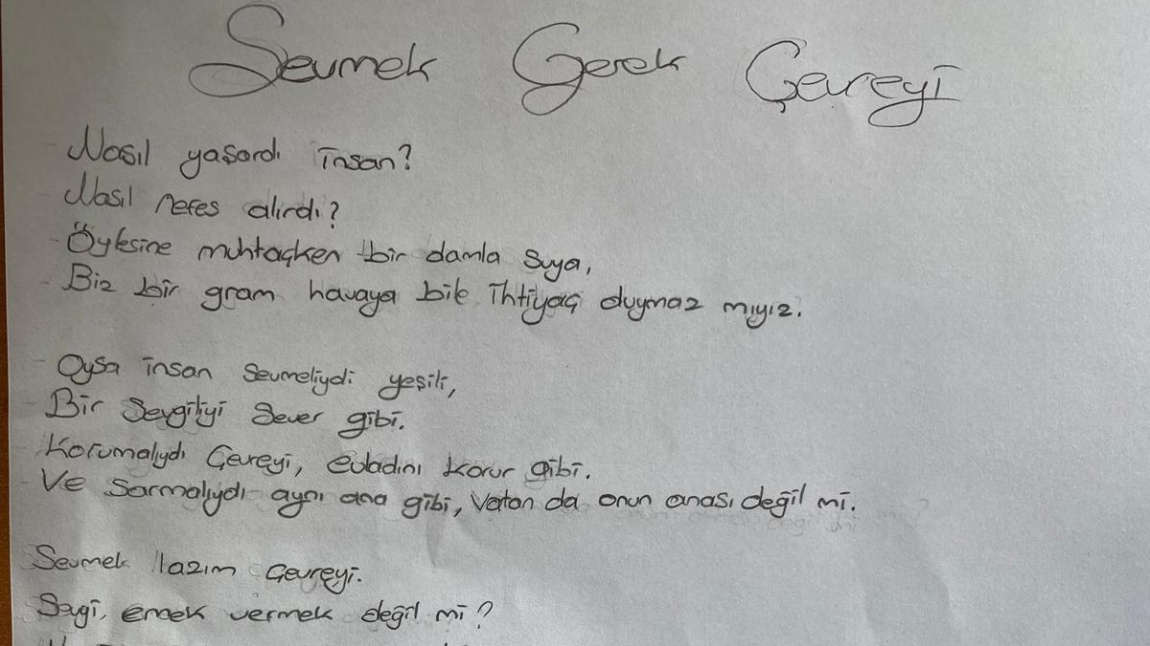 Sevmek Gerek Çevreyi
Nasıl yaşardı insan?
Nasıl nefes alırdı?
Öylesine muhtaçken bir damla suya,
Biz bir gram havaya bile ihtiyaç duymaz mıyız.
Oysa insan sevmeliydi yeşili,
Bir Sevgiliyi Sever gibi.
Korumalıydı Çevreyi, evladını korur gibi.
Ve Sarmalıydı aynı ana gibi, Vatan da onun anası değil mi.
Sevmek lazım Çevreyi.
Sevgi, emek vermek değil mi?